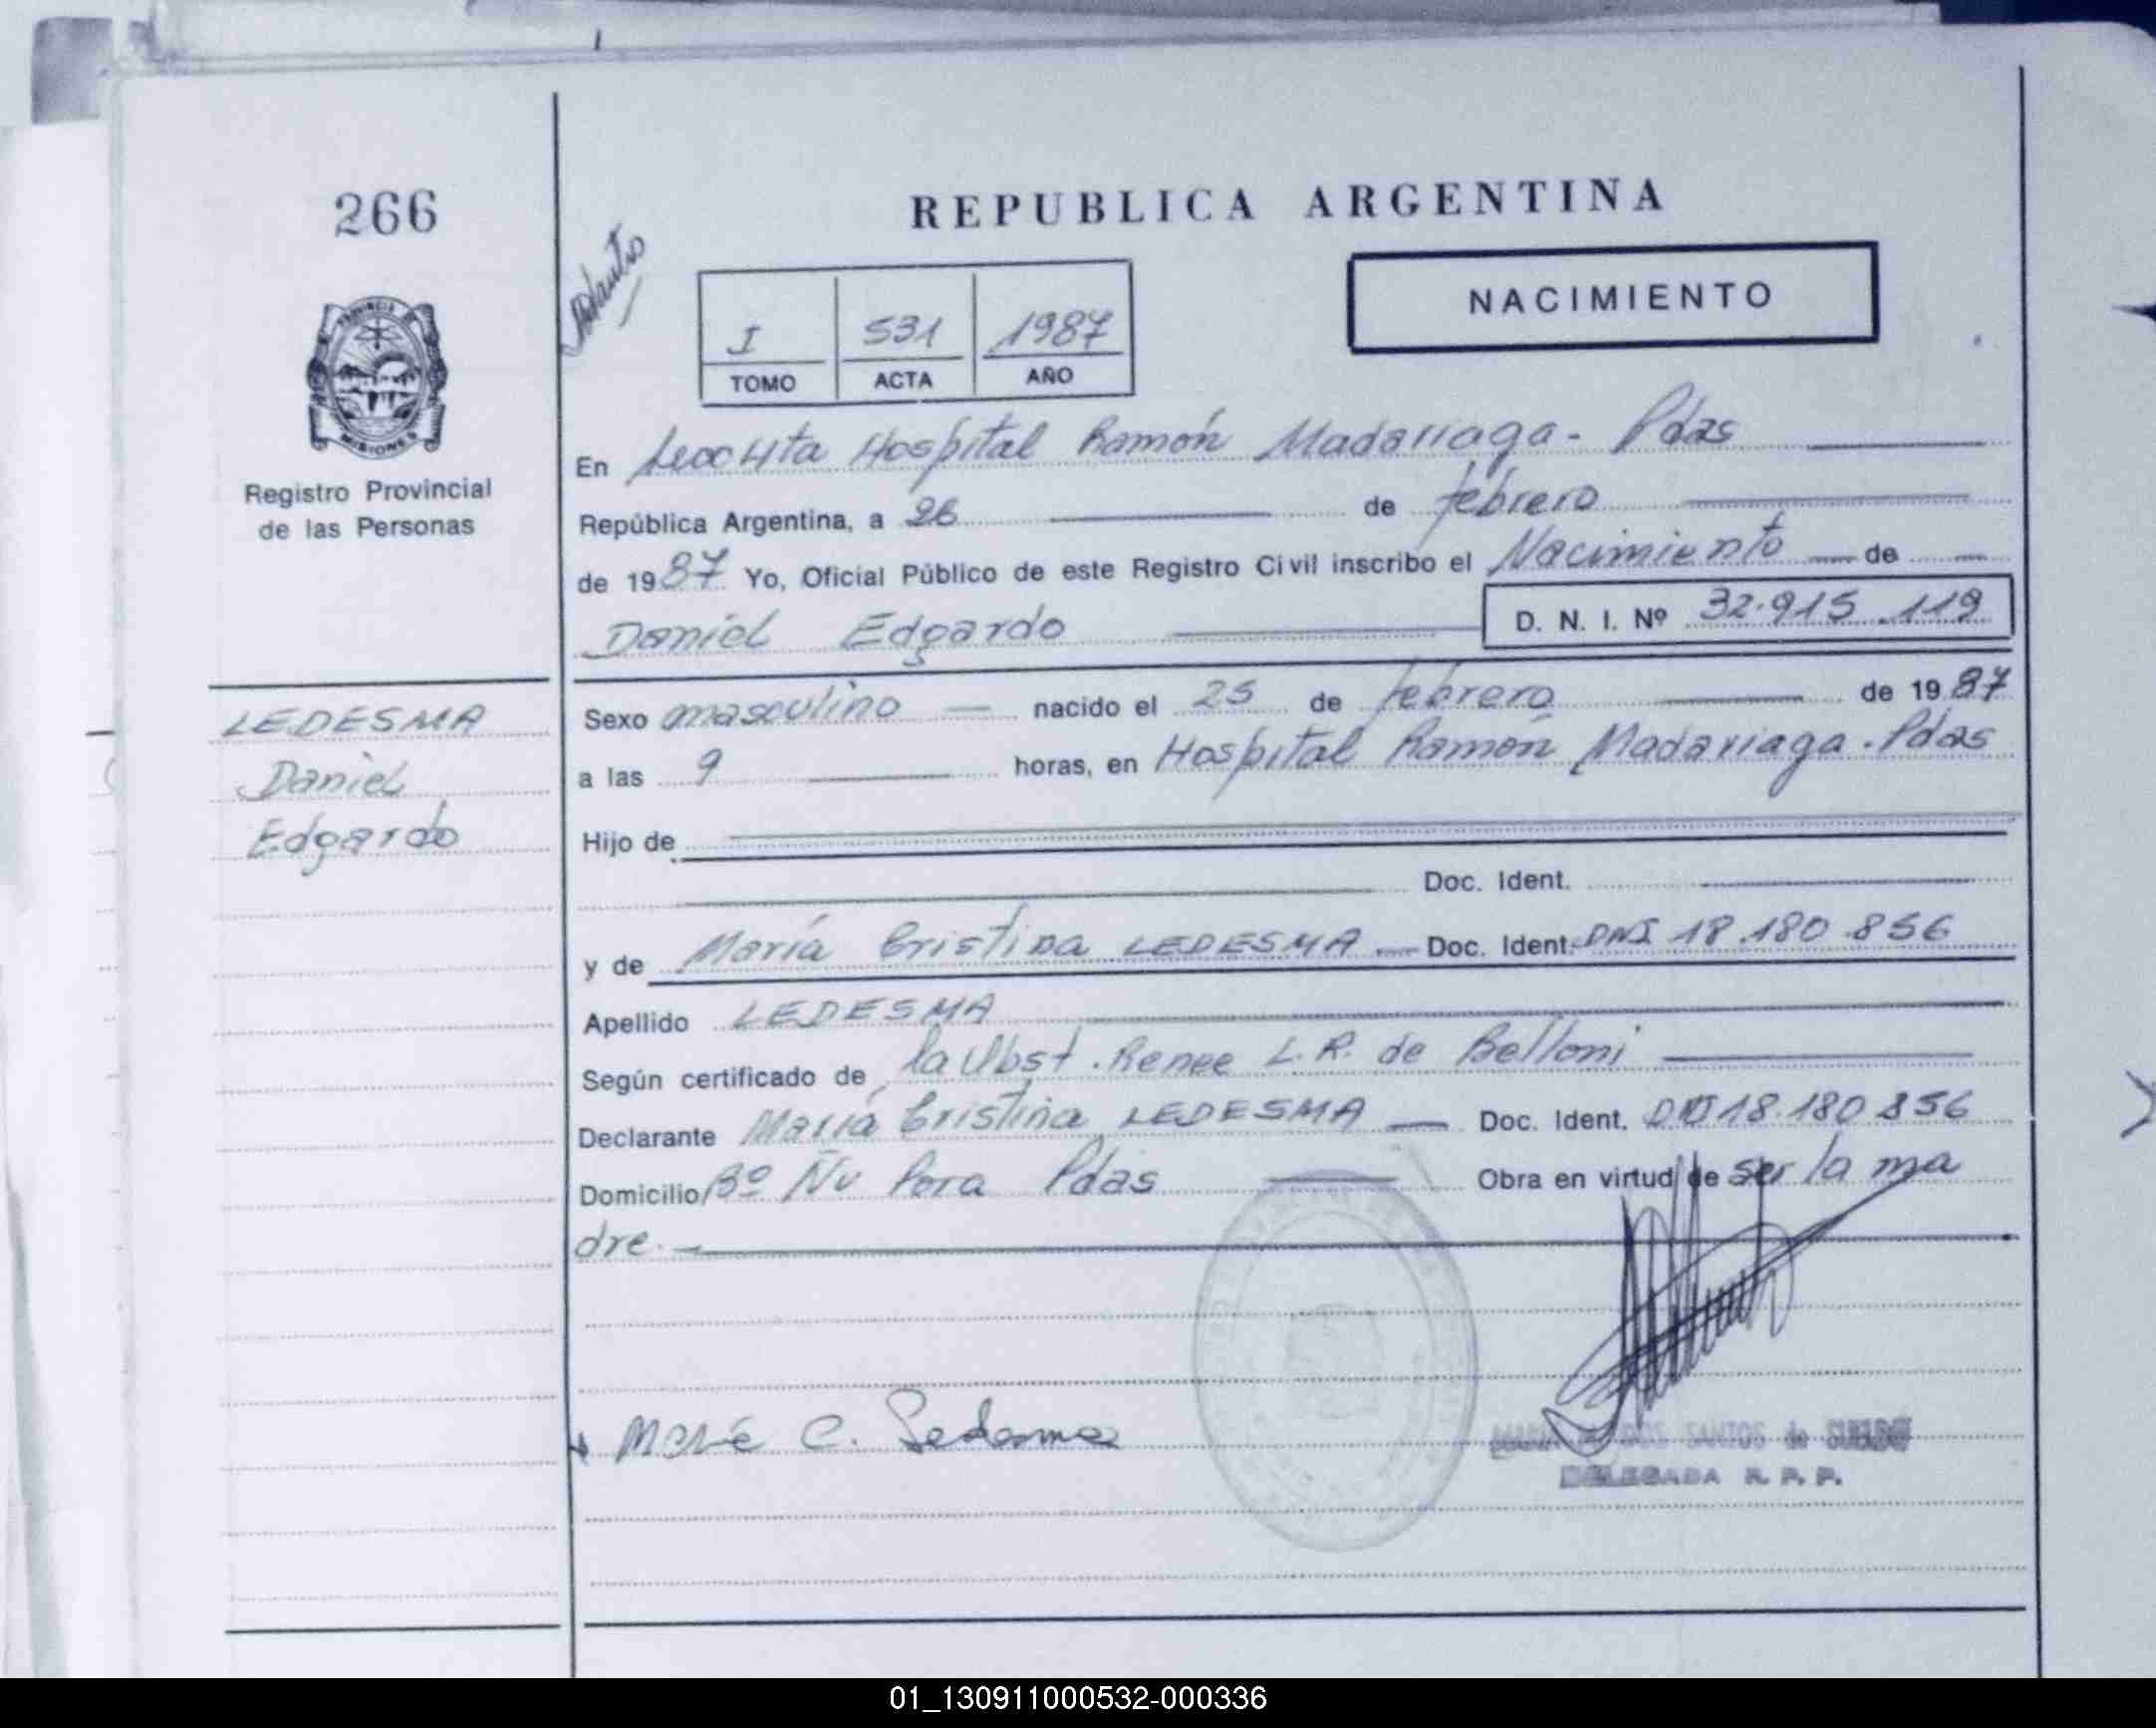 266
REPUBLICA ARGENTINA
NACIMIENTO
I 531 1987
TOMO ACTA AÑO
PROVINCIA
MISIONES
Registro Provincial
de las Personas
En Secc 4ta Hospital Ramón Madariaga - Pdas
República Argentina, a 26 de febrero
de 1987 Yo, Oficial Público de este Registro Civil inscribo el Nacimiento de
Daniel Edgardo D. N. I. Nº 32.915.119
LEDESMA
Daniel
Edgardo
Sexo masculino nacido el 25 de febrero de 1987
a las 9 horas, en Hospital Ramón Madariaga. Pdas
Hijo de
Doc. Ident.
y de María Cristina LEDESMA Doc. Ident. DNI 18.180.856
Apellido LEDESMA
Según certificado de la Obst. Renee L. R. de Belloni
Declarante María Cristina LEDESMA Doc. Ident. DNI 18.180.856
Domicilio Bº Ñu Pora Pdas Obra en virtud de ser la ma
dre.
María C. Ledesma
DOS SANTOS de
DELEGADA R. P. P.
01_130911000532-000336